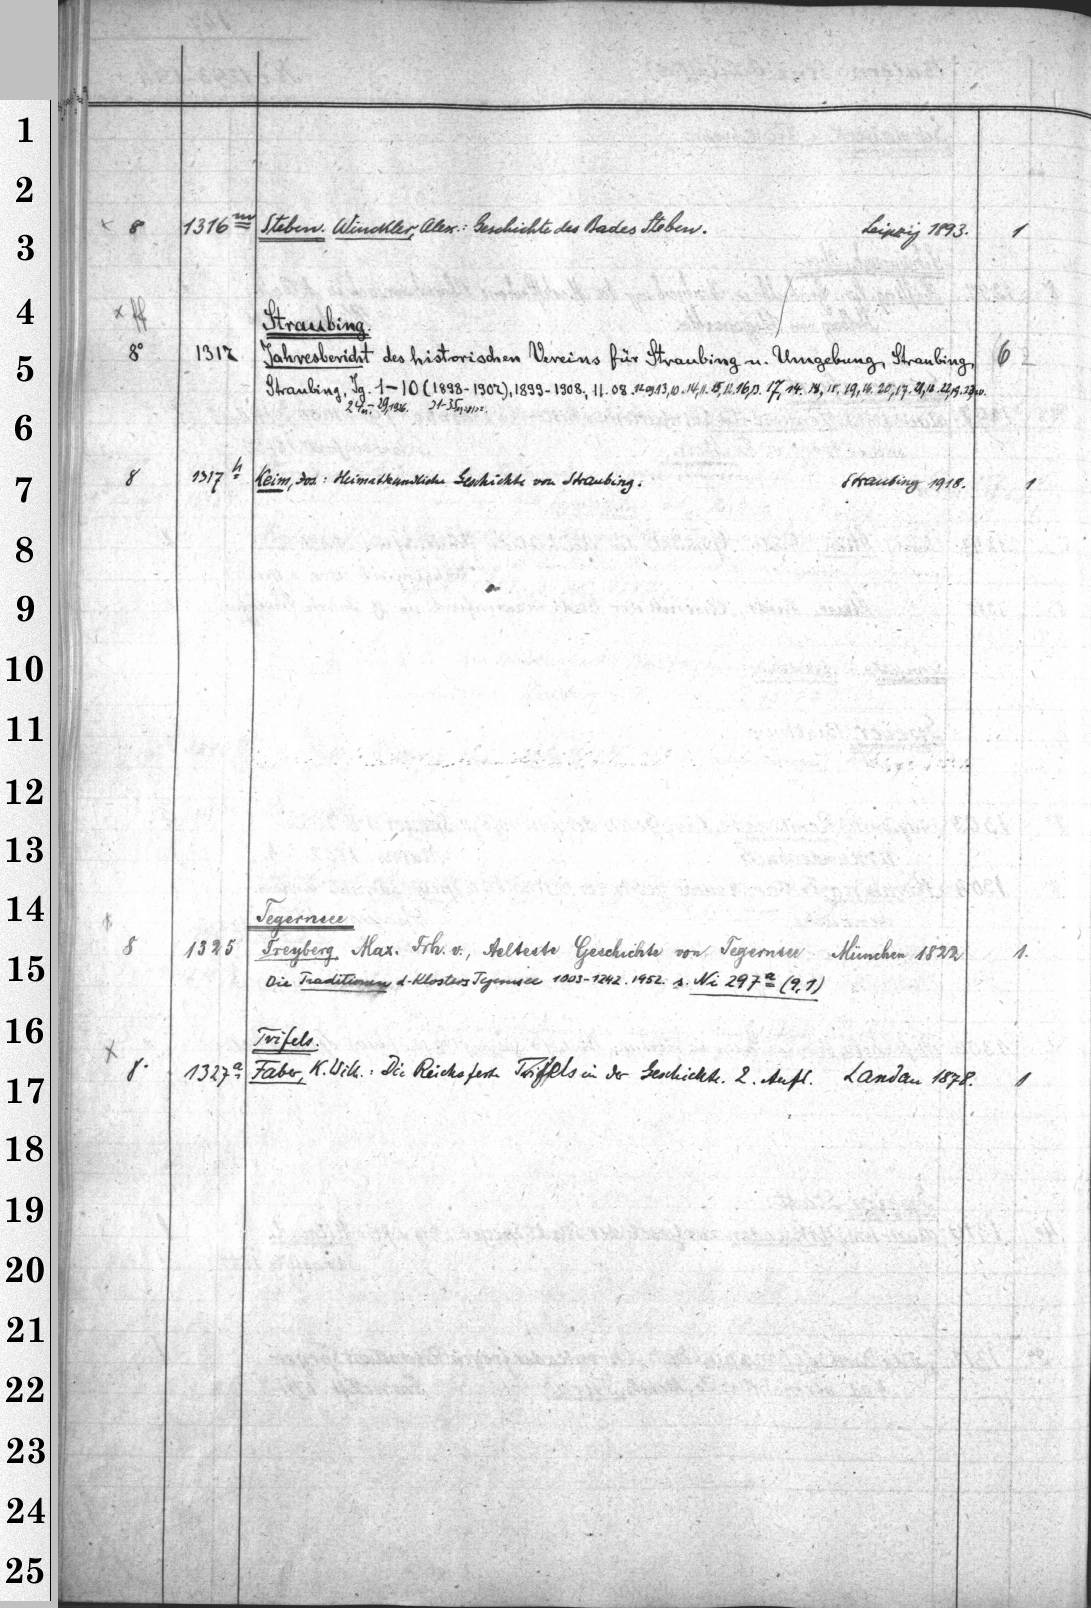 1
2
× 8 1316ᵐ Steben. Winckler, Alex.: Geschichte des Bades Steben. Leipzig 1893. 1
3
4
× ff Straubing.
8° 1317 Jahresbericht des historischen Vereins für Straubing u. Umgebung, Straubing, 6
5
Straubing, Jg. 1-10 (1898-1907), 1899-1908, 11. 08
6
8 1317ʰ Keim, Jos: Heimatkundliche Geschichte von Straubing. Straubing 1918. 1
7
8
9
10
11
12
13
14
Tegernsee
8 1325 Freyberg, Max. Frh. v., Aelteste Geschichte von Tegernsee München 1822 1.
15
Die Traditionen d. Klosters Tegernsee 1003-1242. 1952. s. Ni 297ᵃ (9,1)
16
Trifels.
× 8. 1327ᵃ Faber, K. Wilh.: Die Reichsfeste Trifels in der Geschichte. 2. Aufl. Landau 1878. 1
17
18
19
20
21
22
23
24
25